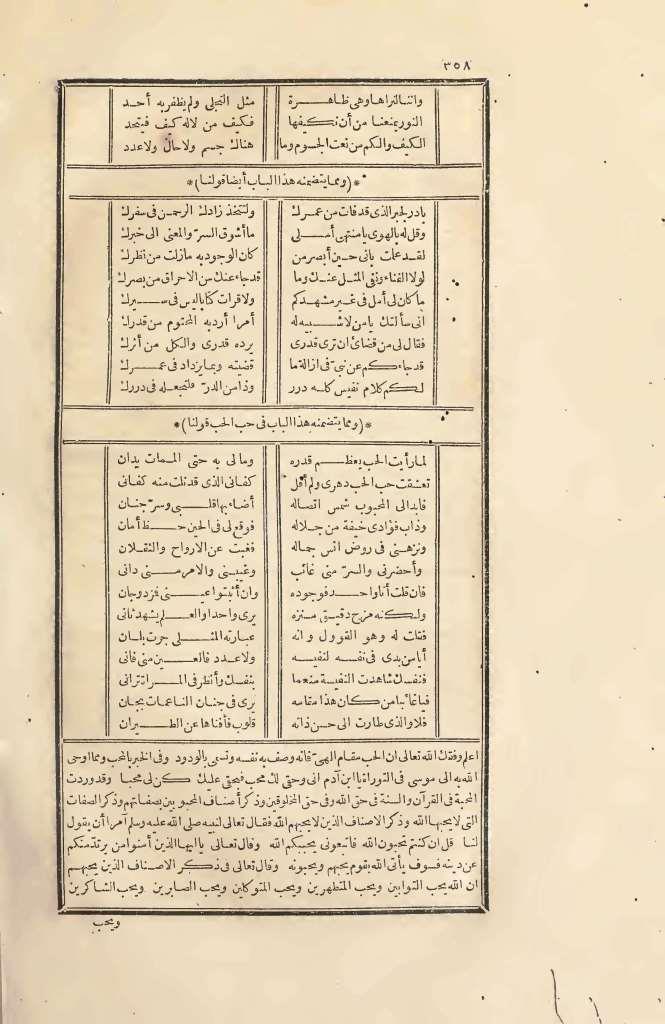 ٣٥٨
واننا لنراها وهي ظاهرة مثل التجلي ولم يظفر به أحد
النور يمنعنا من أن نكيفها فكيف من لا له كيف فيتحد
الكيف والكم من نعت الجسوم وما هناك جسم ولا حال ولا عدد
*(ومما يتضمنه هذا الباب أيضا قولنا)*
بادر لجبر الذي قد فات من عمرك ولتتخذ زادك الرحمن في سفرك
وقل له بالهوى يا منتهى أملي ما أشوق السرّ والمعنى الى خبرك
لقد علمت بأني حين أبصر من كان الوجود به ما زلت من نظرك
لولا الفناء ونفي المثل عنك وما قد جاء عنك من الاحراق من بصرك
ما كان لي أمل في غير مشهدكم ولا قرأت كتابا ليس في سيرك
اني سألتك يا من لا شبيه له أمرا أرد به المحتوم من قدرك
فقال لي من قضائي ان ترى قدري برده قدري والكل من أثرك
قد جاءكم عن نبيّ في ازالة ما قضيته وبما يزداد في عمرك
لكم كلام نفيس كله درر وذا من الدرّ فلتجعله في دررك
*(ومما يتضمنه هذا الباب في حب الحب قولنا)*
لما رأيت الحب يعظم قدره وما لي به حتى الممات يدان
تعشقت حب الحب دهري ولم أقل كفاني الذي قد نلت منه كفاني
فأبدى لي المحبوب شمس اتصاله أضاء بها قلبي وسرّ جناني
وذاب فؤادي خيفة من جلاله فوقع لي في الحين حظ أمان
ونزهني في روض انس جماله فغبت عن الارواح والثقلان
وأحضرني والسرّ مني غائب وغيبني والامر مني داني
فان قلت أنا واحد فوجوده وان أثبتوا عيني فمزدوجان
ولكنه مزج دقيق منزه يرى واحدا والعلم يشهد ثاني
فقلت له وهو القوول وانه عبارته المثلى جرت بلسان
أيا من بدى في نفسه لنفيسه ولا عدد فالعين مني فاني
فنفسك شاهدت النفيسة منعما بنفسك وأنظر في المرآة تراني
فيا غائبا من كان هذا مقامه يرى في جنان الناعمات بجان
فلا والذي طارت الى حسن ذاته قلوب فأفناها عن الطيران
اعلم وفقك الله تعالى ان الحب مقام الهيّ فانه وصف به نفسه وتسمى بالودود وفي الخبر بالمحب ومما اوحى
الله به الى موسى في التوراة يا ابن آدم اني وحقي لك محب فبحقي عليك كن لي محبا وقد وردت
المحبة في القرآن والسنة في حق الله وفي حق المخلوقين وذكر أصناف المحبوبين بصفاتهم وذكر الصفات
التي لا يحبها الله وذكر الاصناف الذين لا يحبهم الله فقال تعالى لنبيه صلى الله عليه وسلم آمرا أن يقول
لنا قل ان كنتم تحبون الله فاتبعوني يحببكم الله وقال تعالى يا ايها الذين آمنوا من يرتد منكم
عن دينه فسوف يأتي الله بقوم يحبهم ويحبونه وقال تعالى في ذكر الاصناف الذين يحبهم
ان الله يحب التوابين ويحب المتطهرين ويحب المتوكلين ويحب الصابرين ويحب الشاكرين
ويحب